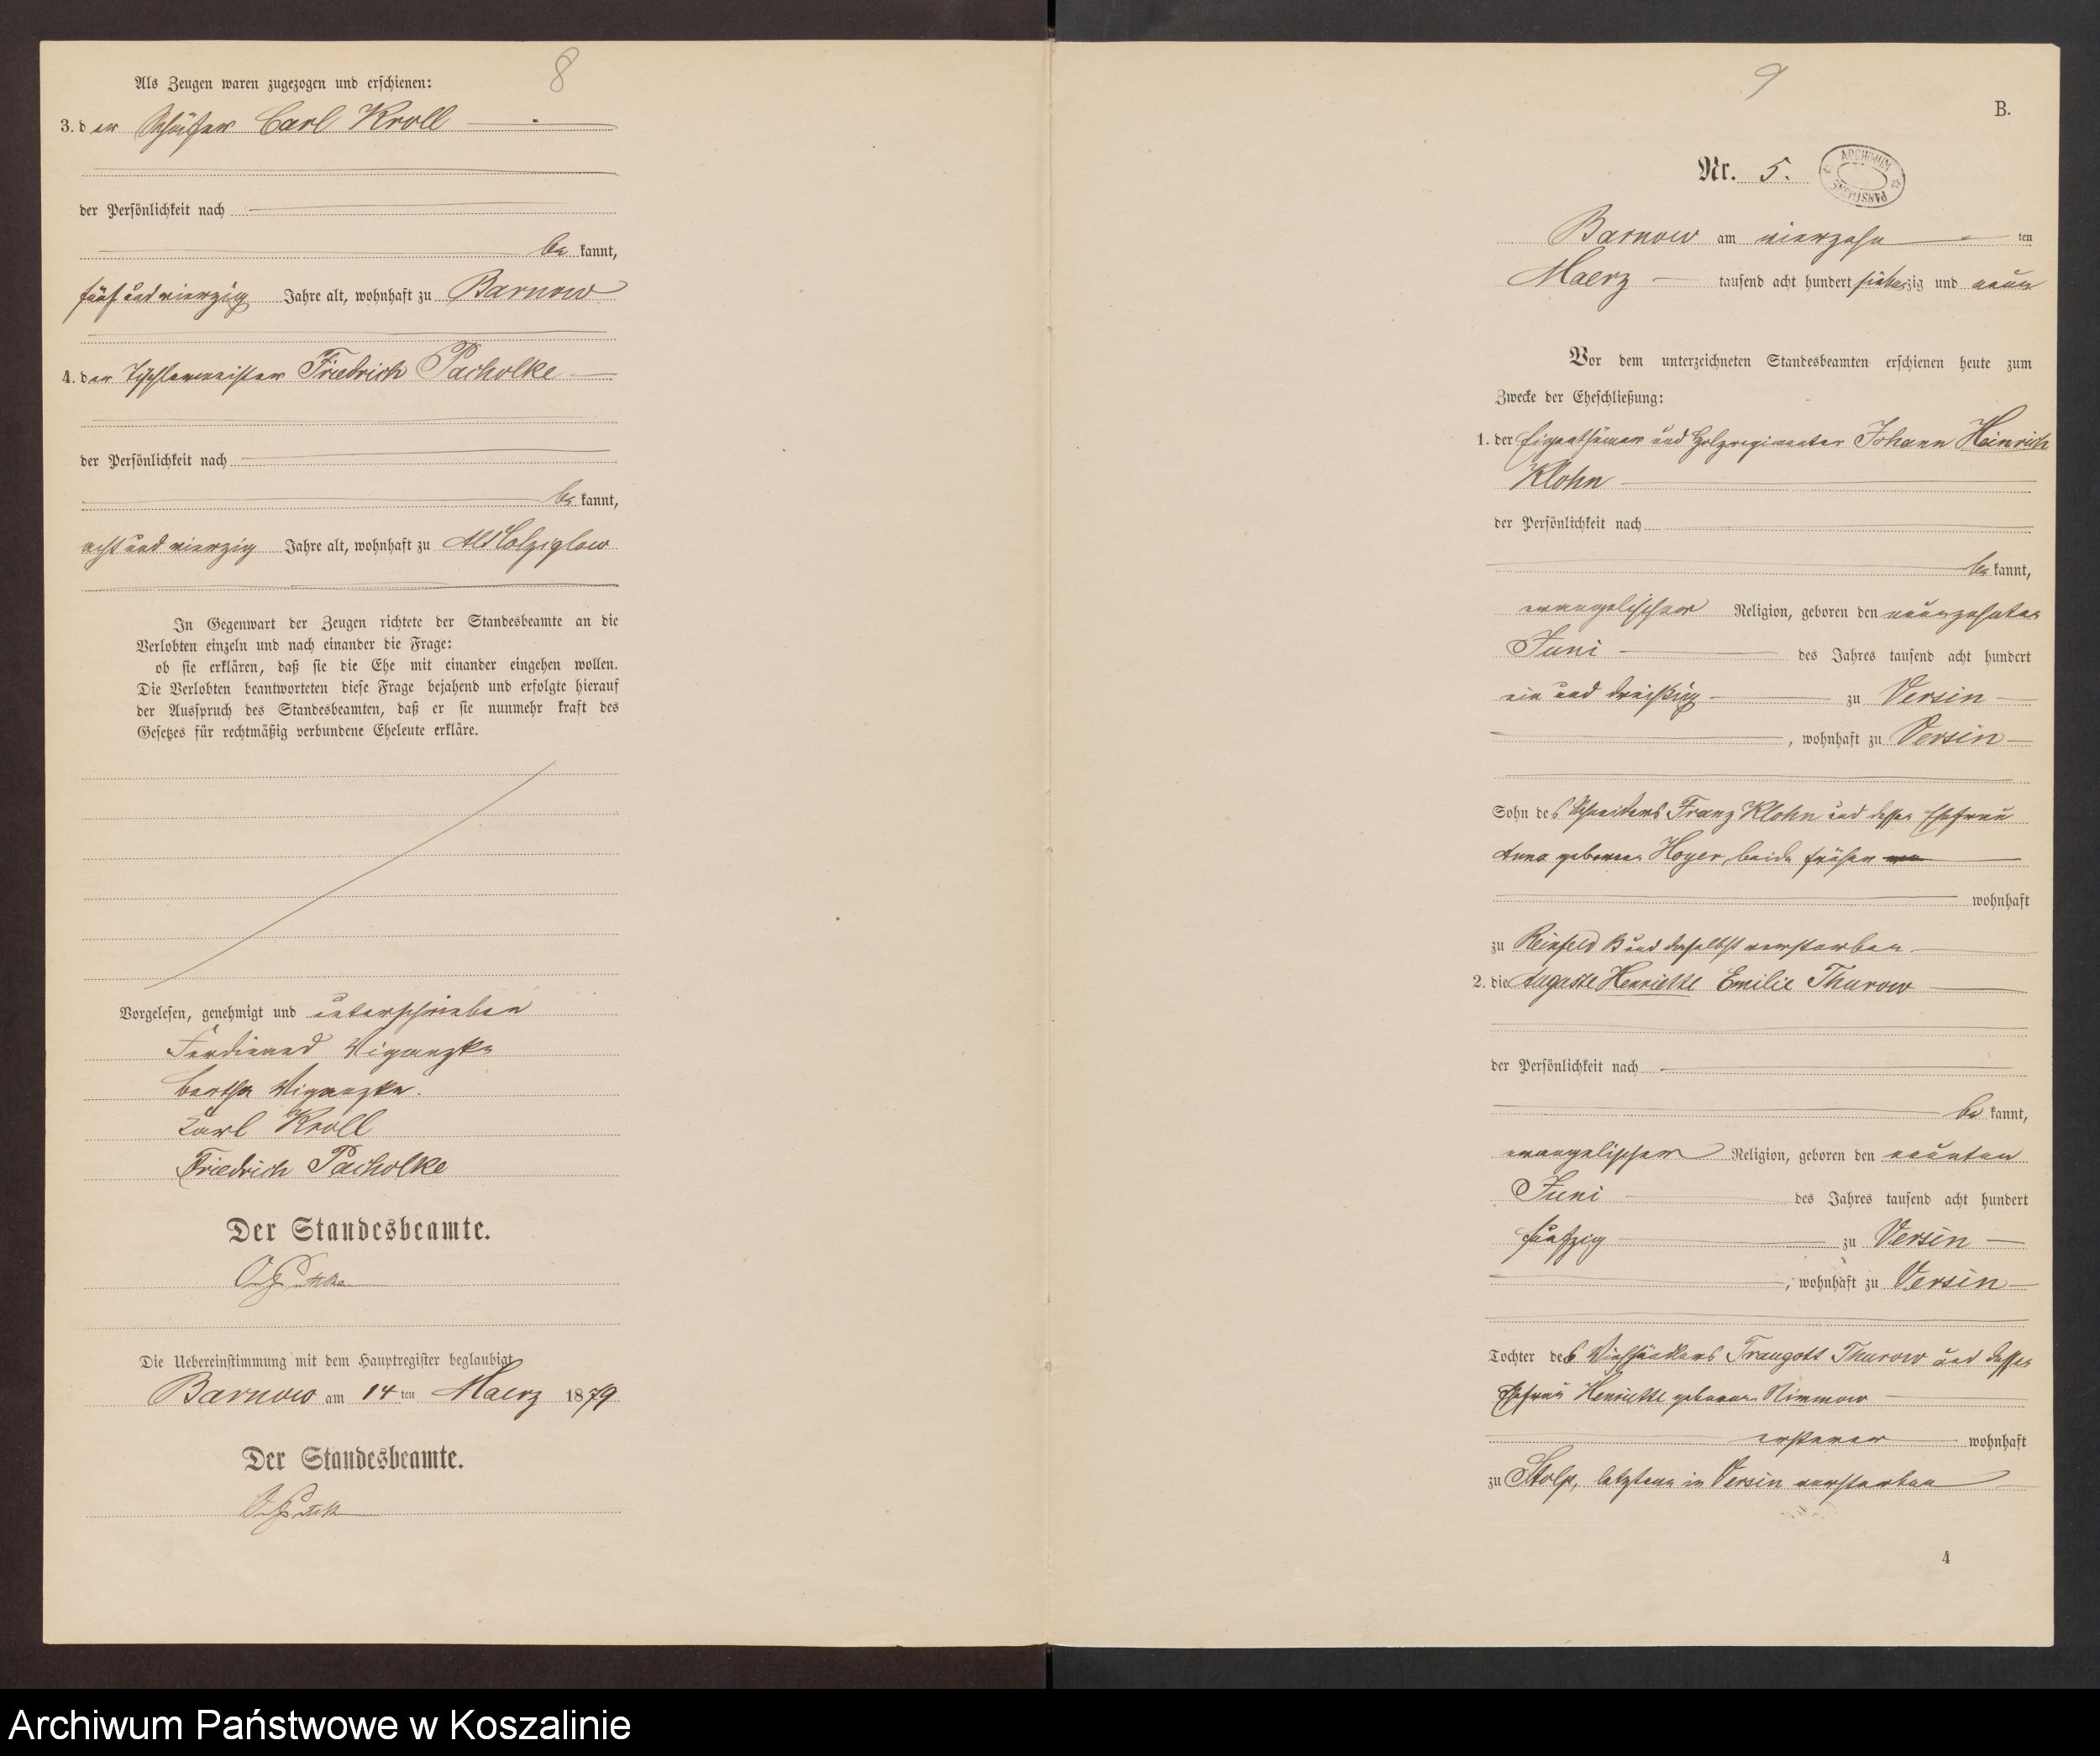 8
Als Zeugen waren zugezogen und erschienen:
3. der Schäfer Carl Kroll
der Persönlichkeit nach
bekannt,
fünf und vierzig Jahre alt, wohnhaft zu Barnow
4. der Tischlermeister Friedrich Pacholke
der Persönlichkeit nach
bekannt,
acht und vierzig Jahre alt, wohnhaft zu Alt Colziglow
In Gegenwart der Zeugen richtete der Standesbeamte an die
Verlobten einzeln und nach einander die Frage:
ob sie erklären, daß sie die Ehe mit einander eingehen wollen.
Die Verlobten beantworteten diese Frage bejahend und erfolgte hierauf
der Ausspruch des Standesbeamten, daß er sie nunmehr kraft des
Gesetzes für rechtmäßig verbundene Eheleute erkläre.
Vorgelesen, genehmigt und unterschrieben
Ferdinand Wiganzke
Bertha Wiganzke.
Carl Kroll
Friedrich Pacholke
Der Standesbeamte.
Die Uebereinstimmung mit dem Hauptregister beglaubigt
Barnow am 14ten Maerz 1879
Der Standesbeamte.
9
B.
Nr. 5.
ARCHIWUM PAŃSTWOWE
Barnow am vierzehnten
Maerz tausend acht hundert siebenzig und neun
Vor dem unterzeichneten Standesbeamten erschienen heute zum
Zwecke der Eheschließung:
1. der Eigenthümer und Holzregimenter Johann Heinrich
Klohn
der Persönlichkeit nach
bekannt,
evangelischer Religion, geboren den neunzehnten
Juni des Jahres tausend acht hundert
ein und dreißig zu Versin
, wohnhaft zu Versin
Sohn des Schneiders Franz Klohn und dessen Ehefrau
Anna geborenen Hoyer, beide früher
wohnhaft
zu Reinfeld B und daselbst verstorben
2. die Auguste Henriette Emilie Thurow
der Persönlichkeit nach
bekannt,
evangelischer Religion, geboren den neunten
Juni des Jahres tausend acht hundert
fünfzig zu Versin
, wohnhaft zu Versin
Tochter des Viehhändlers Traugott Thurow und dessen
Ehefrau Henriette geborenen Nimmow
ersterer wohnhaft
zu Stolp, letztere in Versin verstorben
4
Archiwum Państwowe w Koszalinie